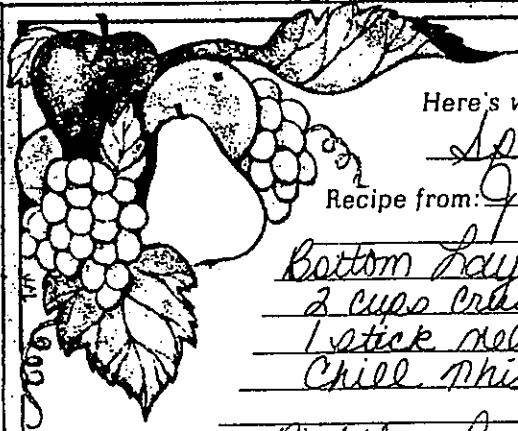 Here's w
Sp
Recipe from: J
Bottom Lay
2 cups crus
1 stick mel
Chill this